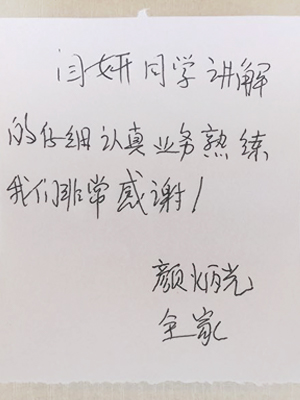 闫妍同学讲解
的仔细认真业务熟练
我们非常感谢！
颜炳光
全家